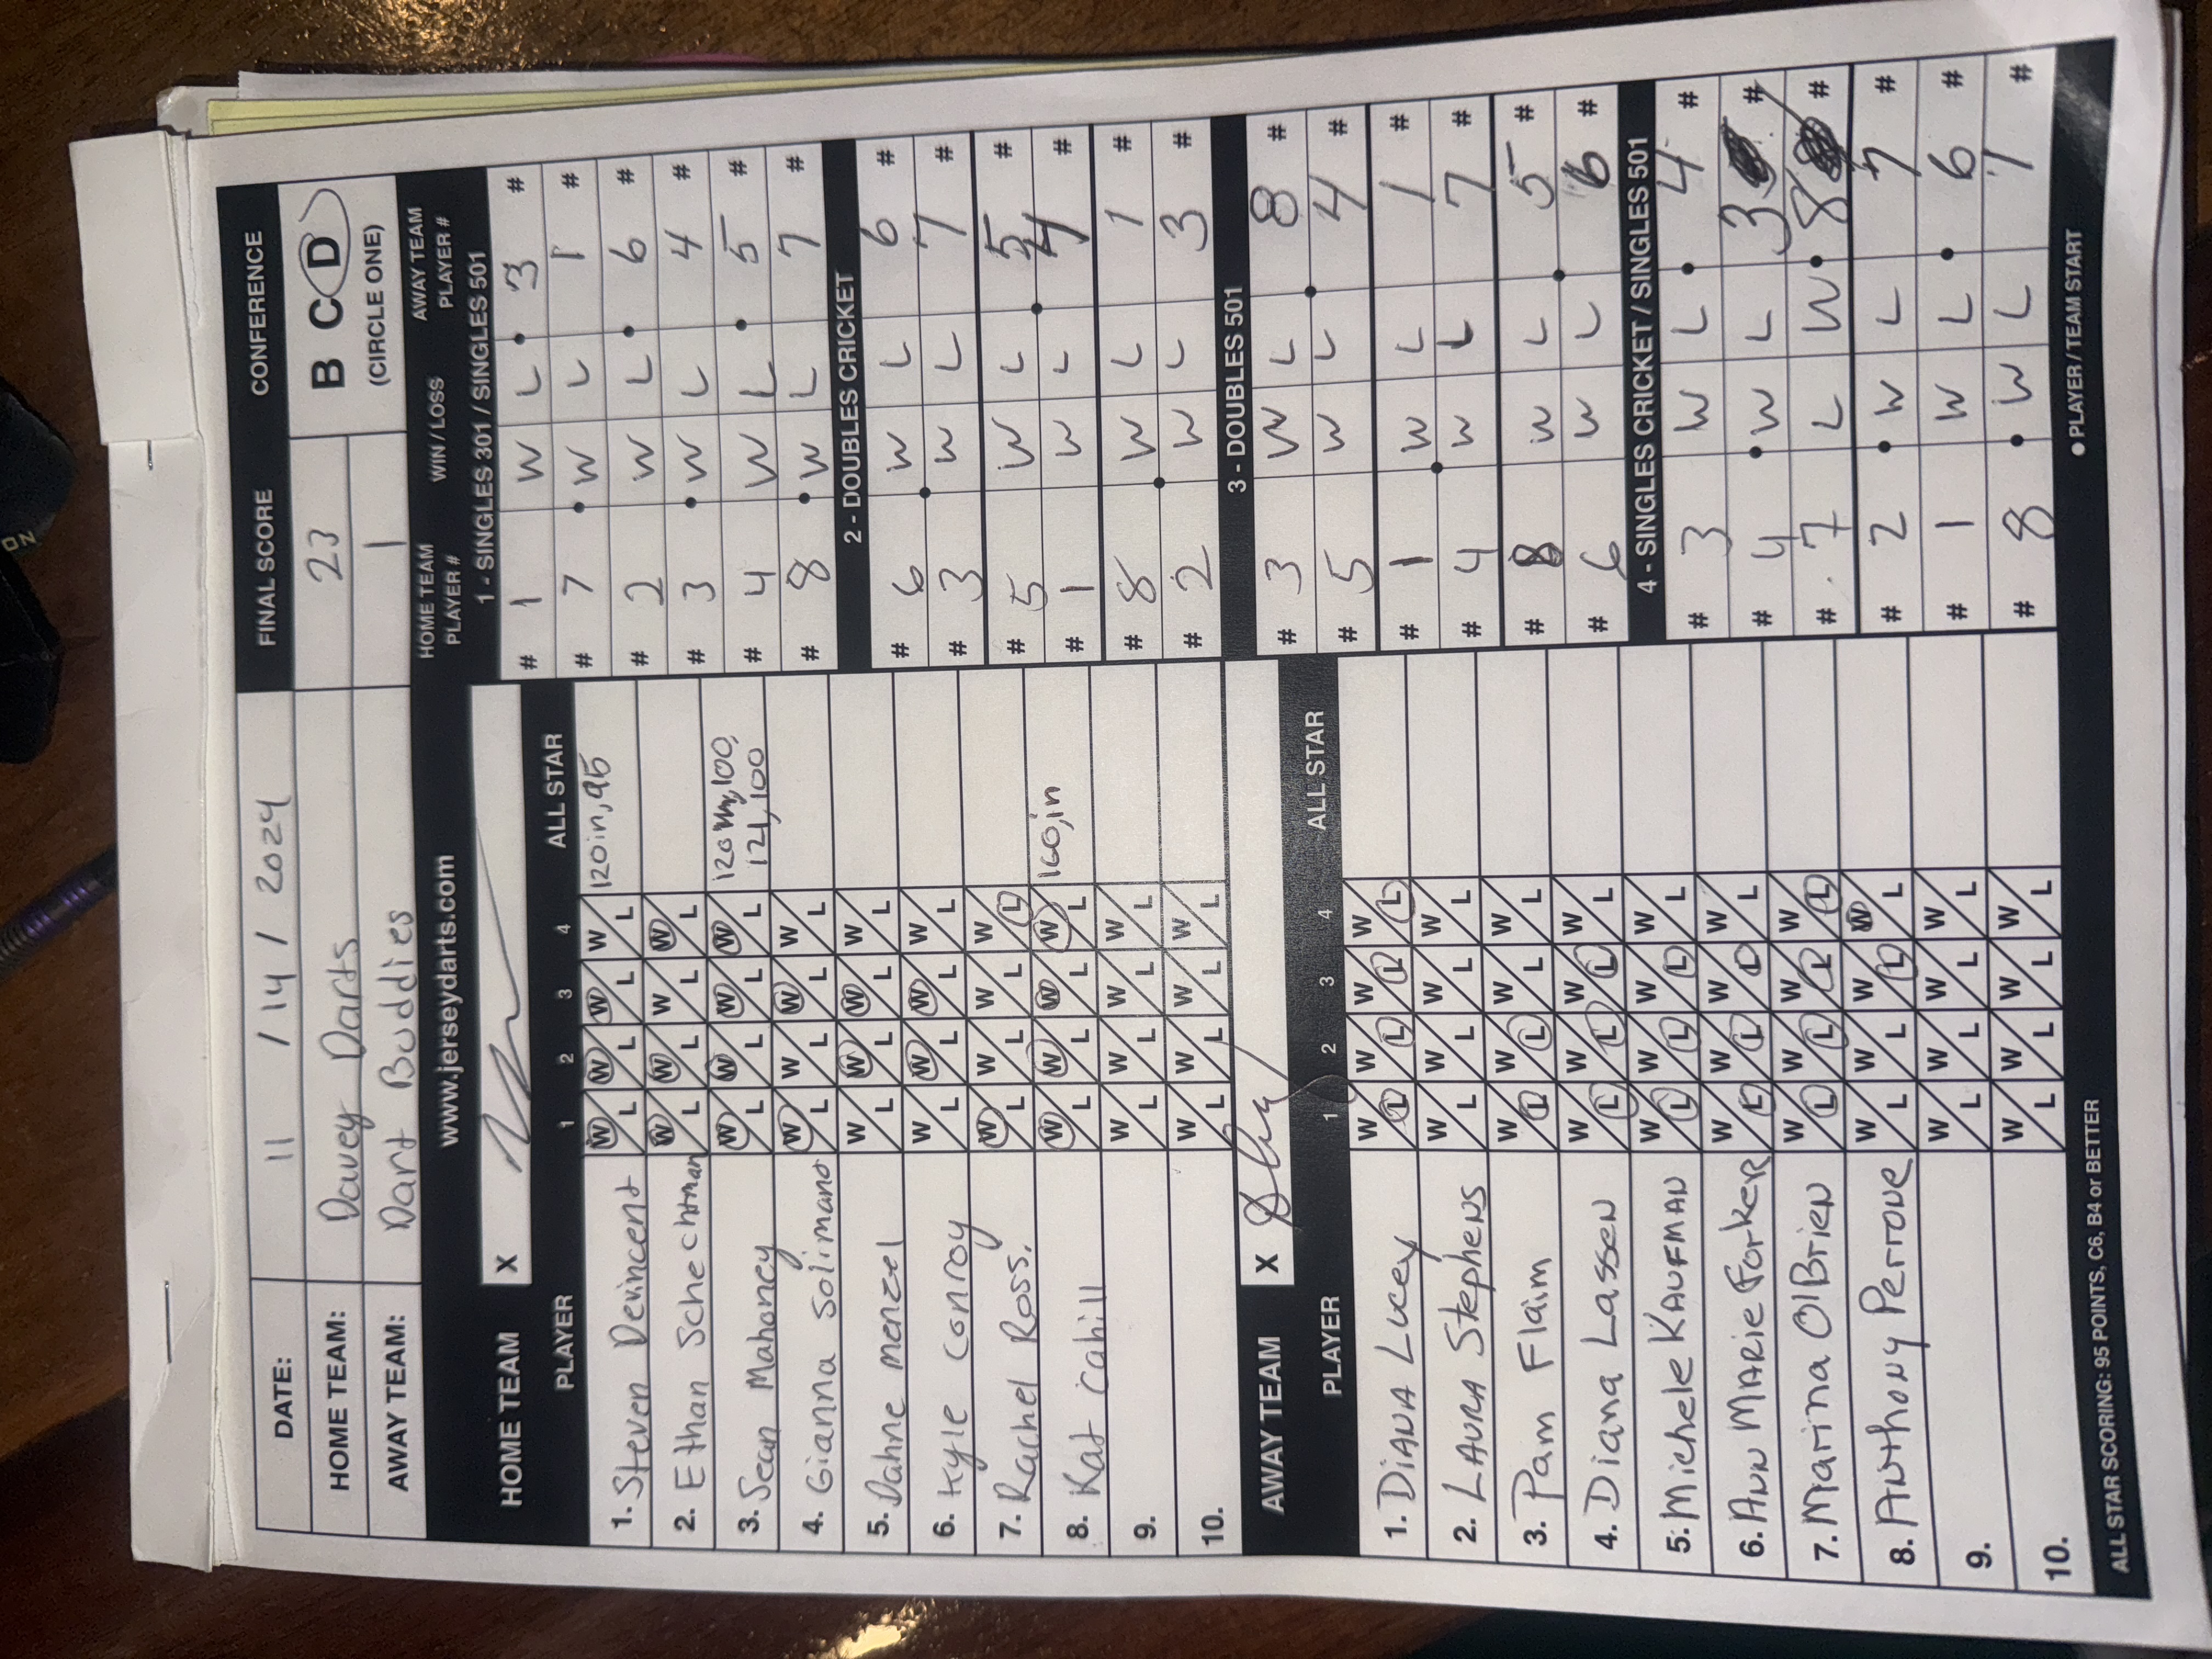 DATE: 11 / 14 / 2024 FINAL SCORE CONFERENCE
HOME TEAM: Davey Darts 23 B C D
AWAY TEAM: Dart Buddies 1 (CIRCLE ONE)
www.jerseydarts.com
HOME TEAM X
PLAYER 1 2 3 4 ALL STAR
1. Steven Devincent W/L W/L W/L W/L 120in, 95
2. Ethan Schechtman W/L W/L W/L W/L
3. Sean Mahoney W/L W/L W/L W/L 120 in, 100,
121, 100
4. Gianna Solimano W/L W/L W/L W/L
5. Dahne menzel W/L W/L W/L W/L
6. Kyle Conroy W/L W/L W/L W/L
7. Rachel Ross. W/L W/L W/L W/L
8. Kat Cahill W/L W/L W/L W/L 100, in
9. W/L W/L W/L W/L
10. W/L W/L W/L W/L
AWAY TEAM X
PLAYER 1 2 3 4 ALL STAR
1. DIANA LUCEY W/L W/L W/L W/L
2. LAURA STEPHENS W/L W/L W/L W/L
3. Pam Flaim W/L W/L W/L W/L
4. Diana Lassen W/L W/L W/L W/L
5. Michele KAUFMAN W/L W/L W/L W/L
6. ANN MARIE Forker W/L W/L W/L W/L
7. Marina O'Brien W/L W/L W/L W/L
8. ANthony Perrone W/L W/L W/L W/L
9. W/L W/L W/L W/L
10. W/L W/L W/L W/L
HOME TEAM PLAYER # WIN / LOSS AWAY TEAM PLAYER #
1 - SINGLES 301 / SINGLES 501
# 1 W L 3 #
# 7 W L 1 #
# 2 W L 6 #
# 3 W L 4 #
# 4 W L 5 #
# 8 W L 7 #
2 - DOUBLES CRICKET
# 6 W L 6 #
# 3 W L 7 #
# 5 W L 5 #
# 1 W L 4 #
# 8 W L 1 #
# 2 W L 3 #
3 - DOUBLES 501
# 3 W L 8 #
# 5 W L 4 #
# 1 W L 1 #
# 4 W L 7 #
# 8 W L 5 #
# 6 W L 6 #
4 - SINGLES CRICKET / SINGLES 501
# 3 W L 4 #
# 4 W L 3 #
# 7 L W 8 #
# 2 W L 5 #
# 1 W L 6 #
# 8 W L 1 #
ALL STAR SCORING: 95 POINTS, C6, B4 or BETTER
● PLAYER / TEAM START